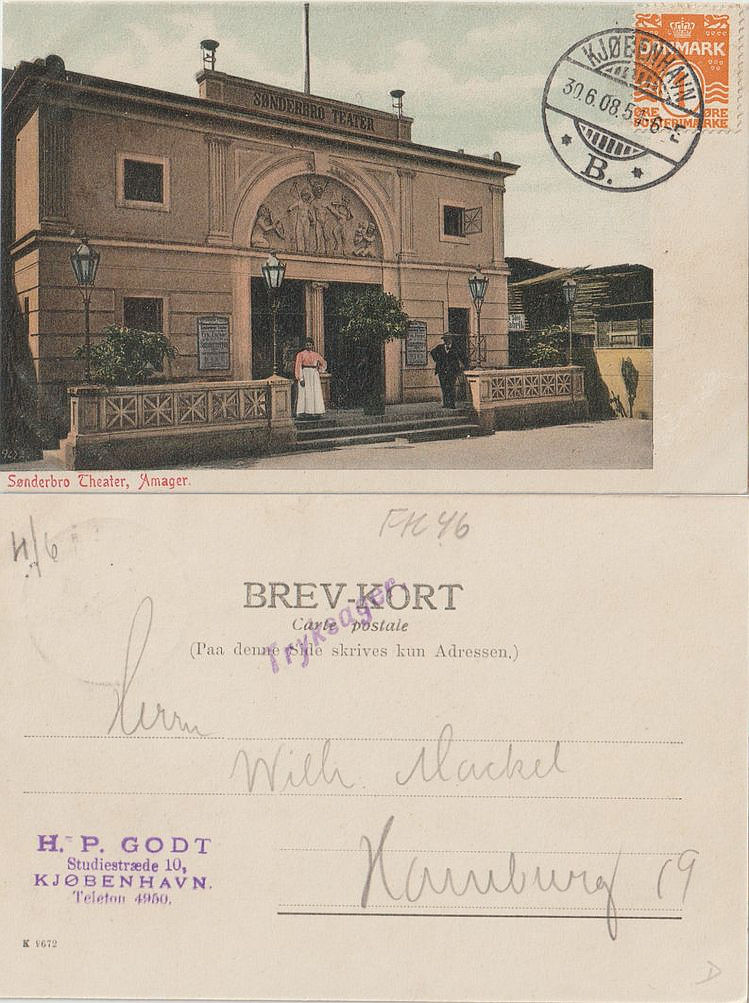 SØNDERBRO TEATER
DANMARK
1
ØRE ØRE
POSTFRIMÆRKE
KJØBENHAVN
30.6.08.5
B.
Sønderbro Theater, Amager.
FK 46
BREV-KORT
Carte postale
Tryksager.
(Paa denne Side skrives kun Adressen.)
Herrn
Wilh. Mackel
H. P. GODT
Studiestræde 10,
KJØBENHAVN.
Telefon 4950.
Hamburg 19
K 8672
D